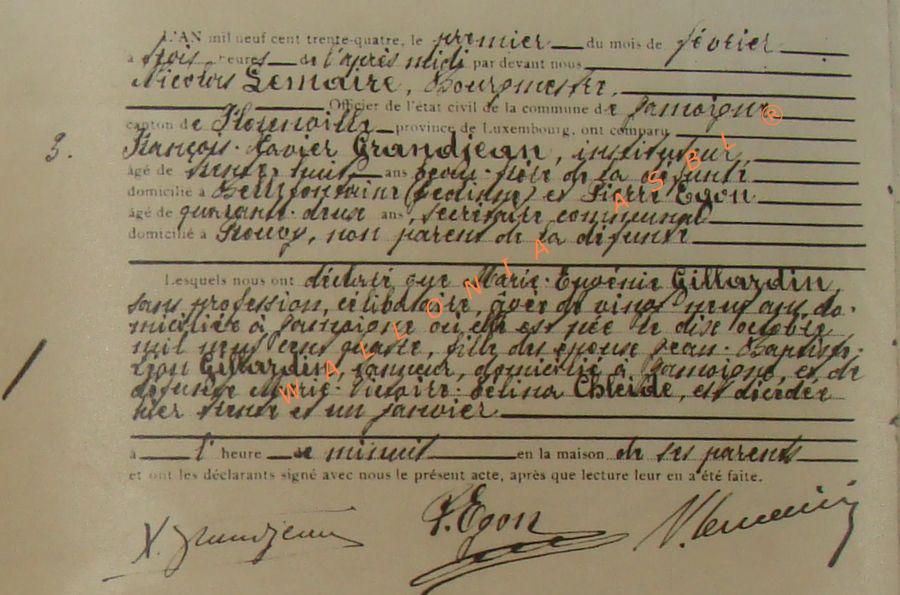 L'AN mil neuf cent trente-quatre, le premier du mois de février
à trois heures de l'après midi par devant nous
Nicolas Lemaire, Bourgmestre,
Officier de l'état civil de la commune de Jamoigne
canton de Florenville province de Luxembourg, ont comparu
3. François-Xavier Grandjean, instituteur,
âgé de trente huit ans beau-frère de la défunte
domicilié à Bellefontaine et Pierre Egon
âgé de quarante-deux ans, secrétaire communal
domicilié à, non parent de la défunte
Lesquels nous ont déclaré que Marie-Eugénie Gillardin,
sans profession, célibataire, âgée de vingt neuf ans, do-
miciliée à Jamoigne où elle est née le dix octobre
mil neuf cent quatre, fille des époux Jean-Baptiste-
Gillardin, domicilié à Jamoigne, et de
défunte Marie-Victoire-Célina Chleide, est décédée
hier trente et un janvier
à l'heure de minuit en la maison de ses parents
et ont les déclarants signé avec nous le présent acte, après que lecture leur en a été faite.
X. Grandjean P. Egon N. Lemaire
WALLONIA ASBL ®